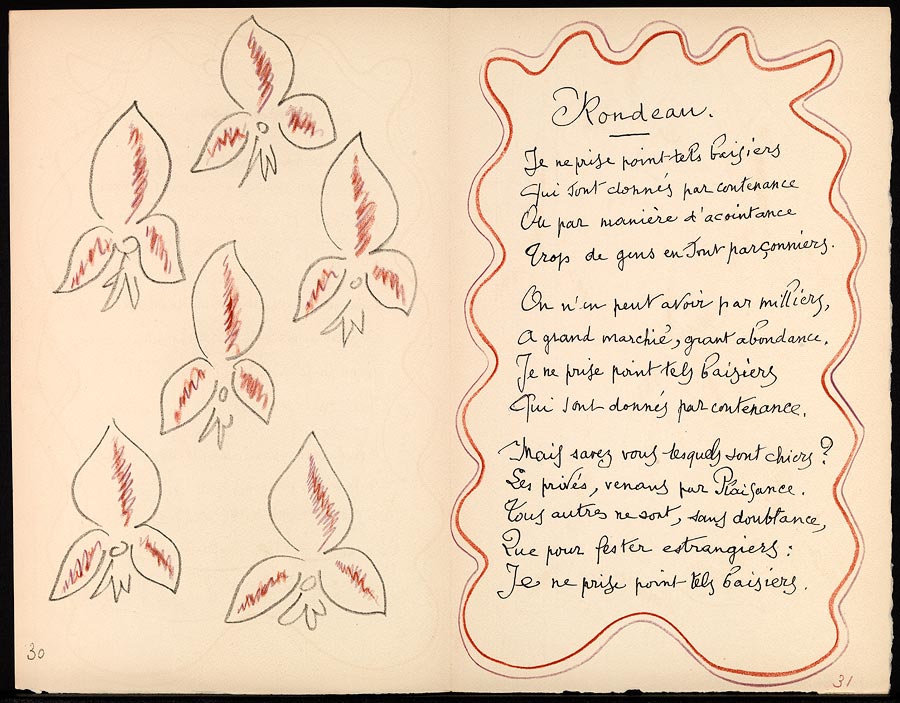 30
Rondeau.
Je ne prise point tels baisiers
Qui sont donnés par contenance
Ou par manière d'acointance
Trop de gens en sont parçonniers.
On n'en peut avoir par milliers,
A grand marchié, grant abondance.
Je ne prise point tels baisiers
Qui sont donnés par contenance.
Mais savez vous lesquels sont chiers?
Les privés, venans par Plaisance.
Tous autres ne sont, sans doubtance,
Que pour fester estrangiers:
Je ne prise point tels baisiers.
31